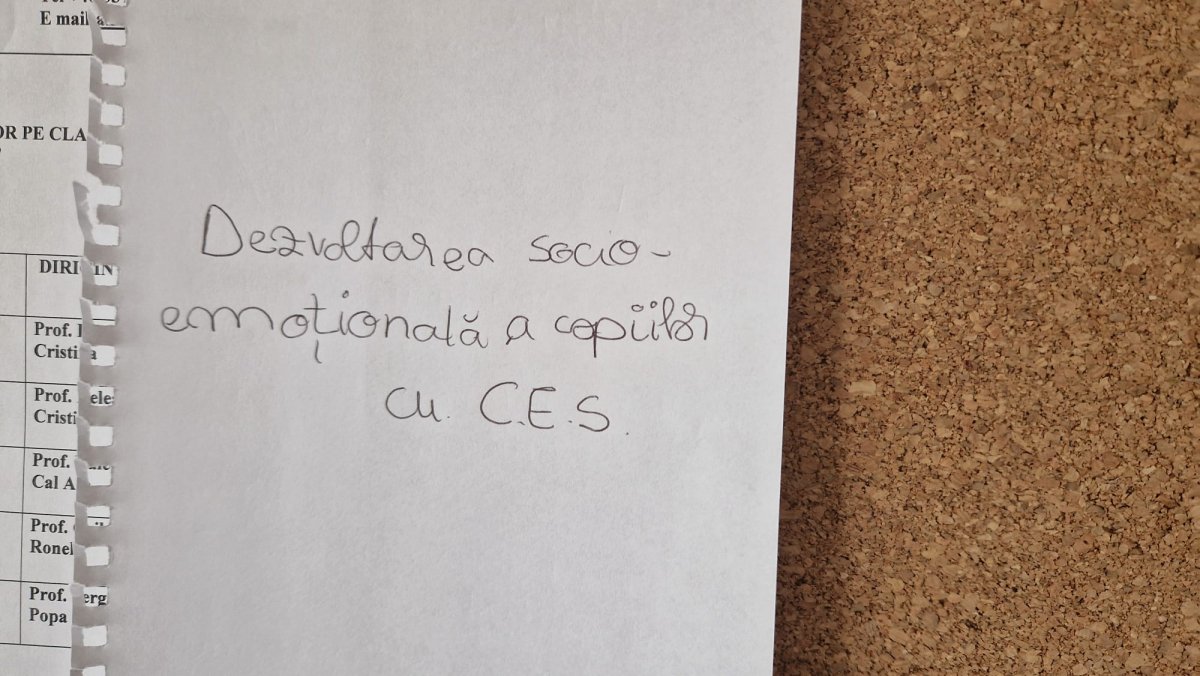 E mail
OR PE CLA
DIRI
Prof.
Cristi
Prof.
Cristi
Prof.
Cal A
Prof.
Ronel
Prof.
Popa
Dezvoltarea socio-
emoțională a copiilor
cu. C.E.S.